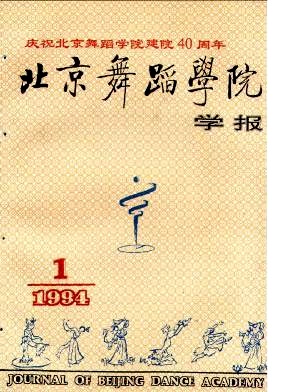 庆祝北京舞蹈学院建院 40 周年
北京舞蹈學院
学报
1
1994
JOURNAL OF BEIJING DANCE ACADEMY